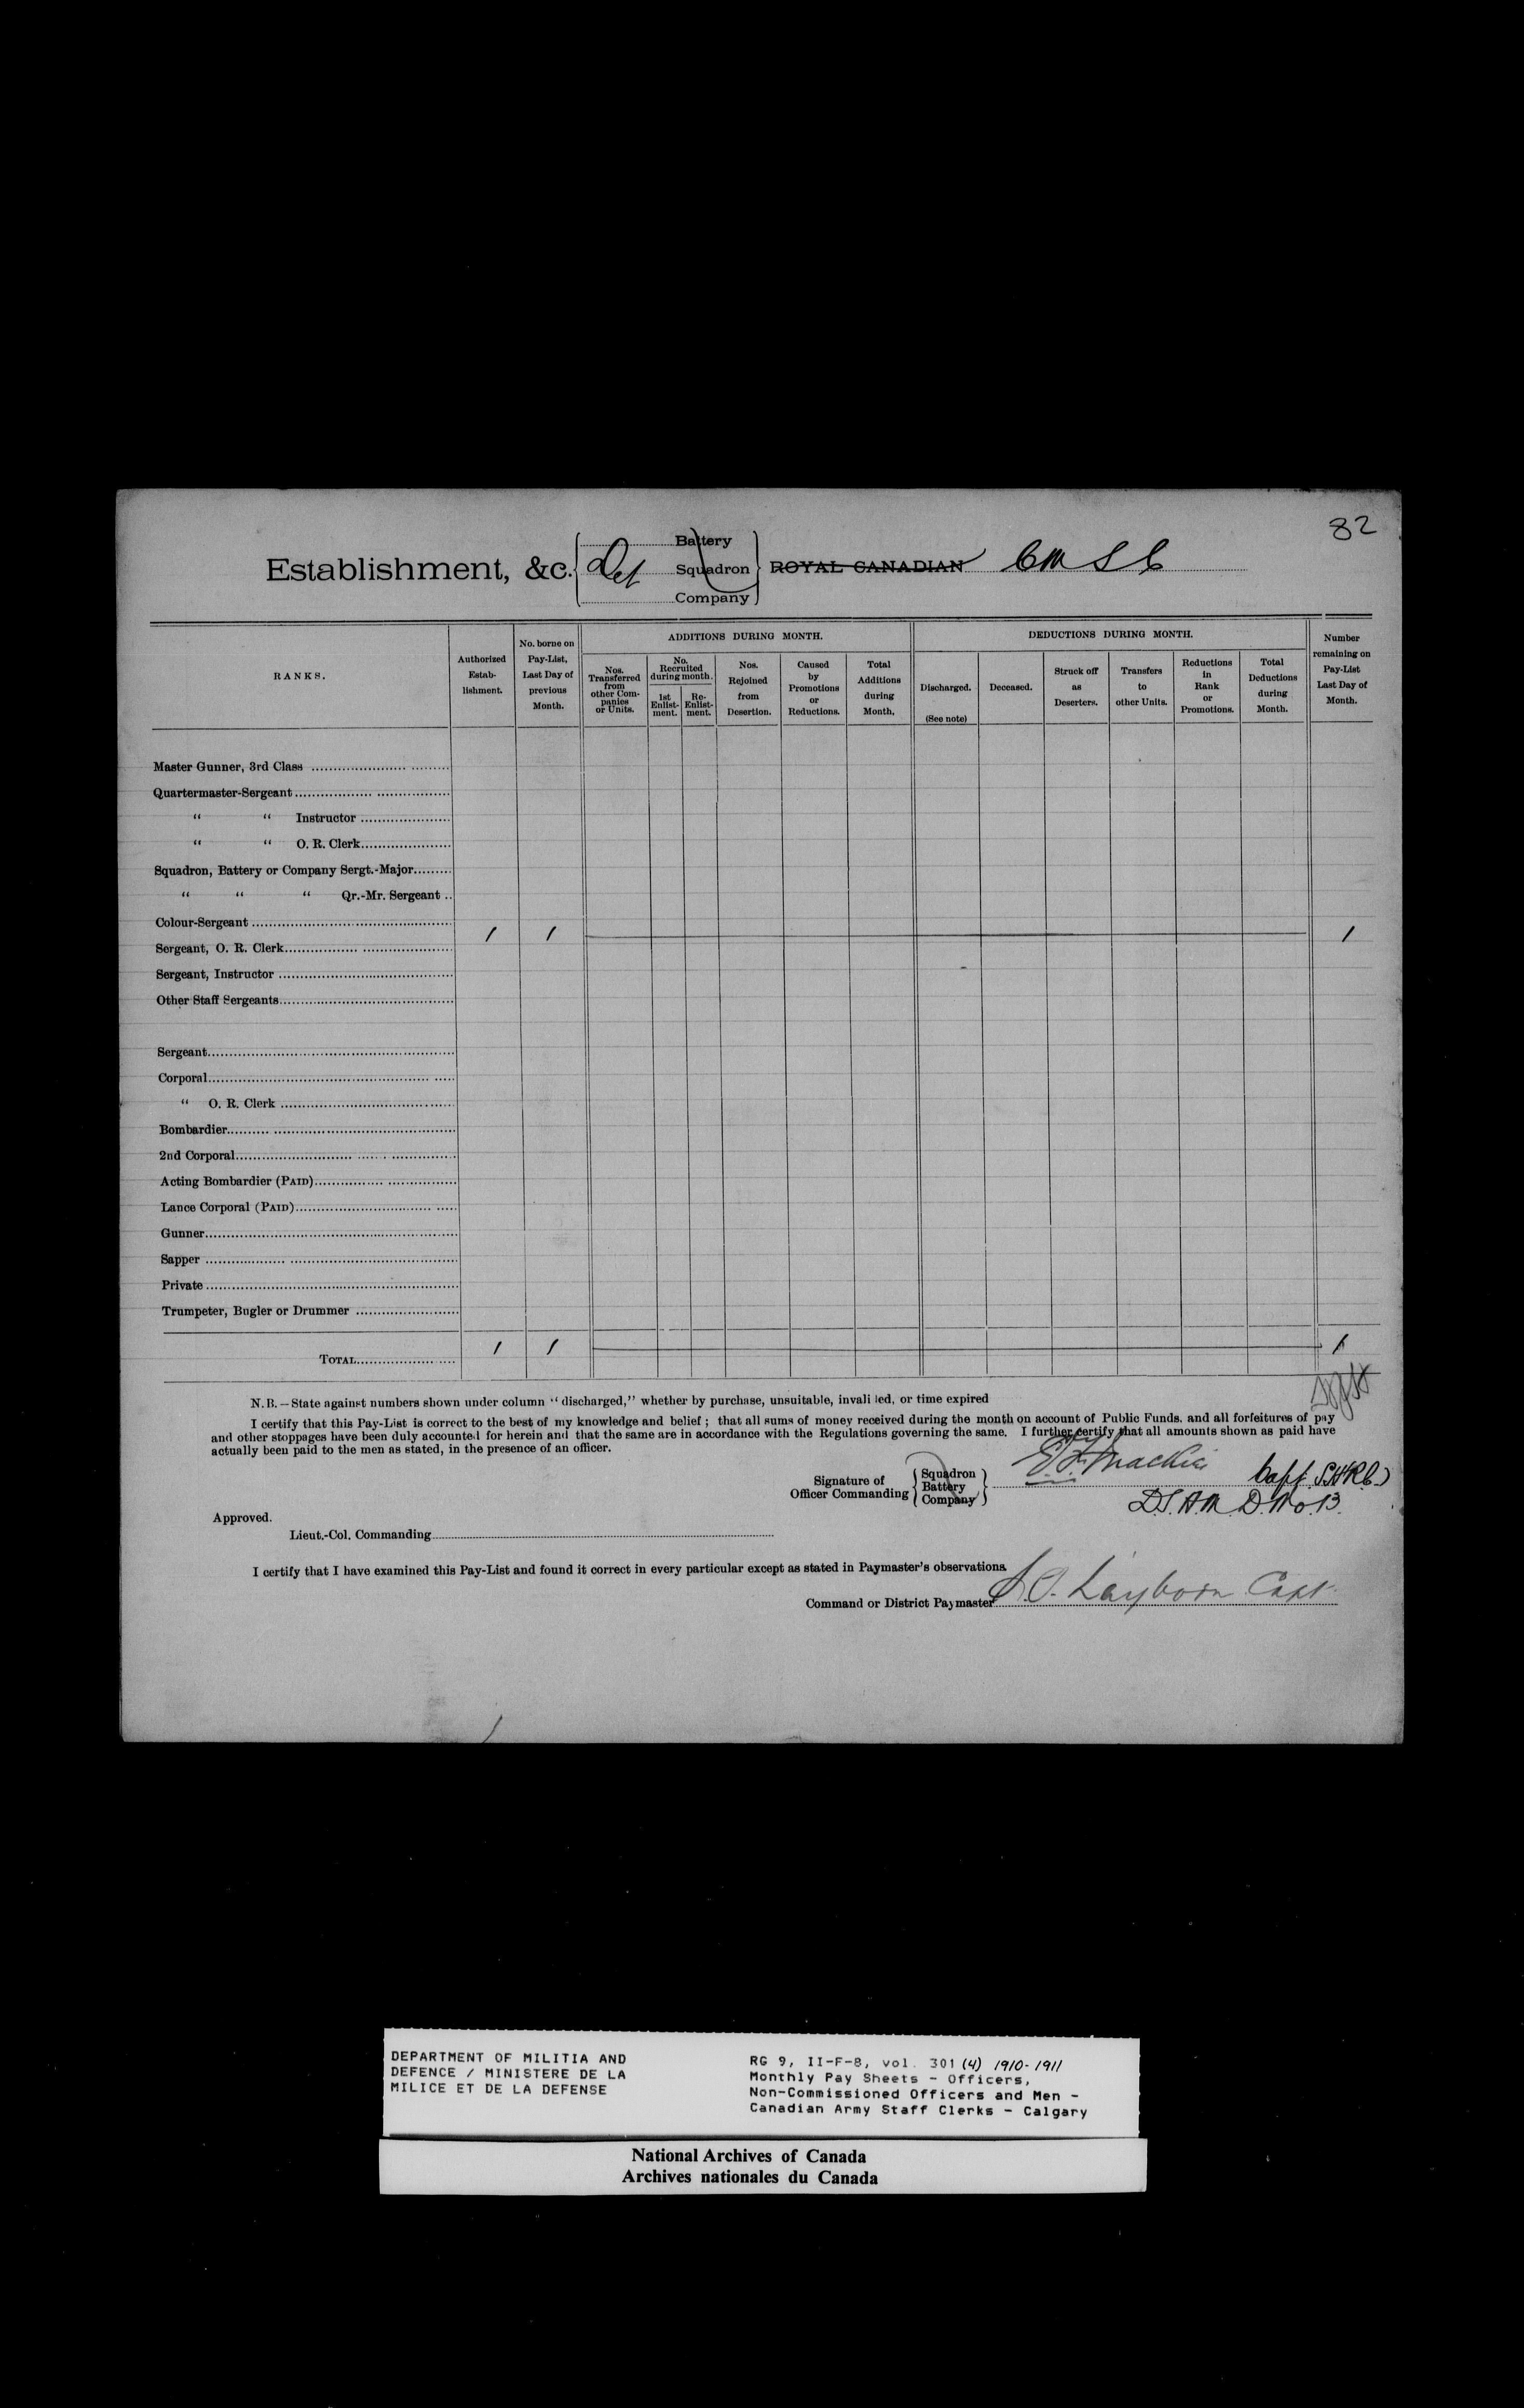 82
Establishment, &c. Det Battery Squadron Company ROYAL CANADIAN C M S C
RANKS.
Authorized Estab-lishment.
No. borne on Pay-List, Last Day of previous Month.
ADDITIONS DURING MONTH.
Nos. Transferred from other Com-panies or Units.
No. Recruited during month.
1st Enlist-ment.
Re-Enlist-ment.
Nos. Rejoined from Desertion.
Caused by Promotions or Reductions.
Total Additions during Month.
DEDUCTIONS DURING MONTH.
Discharged. (See note)
Deceased.
Struck off as Deserters.
Transfers to other Units.
Reductions in Rank or Promotions.
Total Deductions during Month.
Number remaining on Pay-List Last Day of Month.
Master Gunner, 3rd Class
Quartermaster-Sergeant
" " Instructor
" " O. R. Clerk
Squadron, Battery or Company Sergt.-Major
" " " Qr.-Mr. Sergeant
Colour-Sergeant
Sergeant, O. R. Clerk 1 1 1
Sergeant, Instructor
Other Staff Sergeants
Sergeant
Corporal
" O. R. Clerk
Bombardier
2nd Corporal
Acting Bombardier (PAID)
Lance Corporal (PAID)
Gunner
Sapper
Private
Trumpeter, Bugler or Drummer
TOTAL 1 1 1
N.B.—State against numbers shown under column "discharged," whether by purchase, unsuitable, invalided, or time expired
I certify that this Pay-List is correct to the best of my knowledge and belief; that all sums of money received during the month on account of Public Funds. and all forfeitures of pay
and other stoppages have been duly accounted for herein and that the same are in accordance with the Regulations governing the same. I further certify that all amounts shown as paid have
actually been paid to the men as stated, in the presence of an officer.
Signature of Officer Commanding Squadron Battery Company E F Mackie Capt
D.S.A. M.D. No. 13.
Approved.
Lieut.-Col. Commanding
I certify that I have examined this Pay-List and found it correct in every particular except as stated in Paymaster's observations
Command or District Paymaster Layborn Capt.
DEPARTMENT OF MILITIA AND
DEFENCE / MINISTERE DE LA
MILICE ET DE LA DEFENSE
RG 9, II-F-8, vol. 301 (4) 1910-1911
Monthly Pay Sheets - Officers,
Non-Commissioned Officers and Men -
Canadian Army Staff Clerks - Calgary
National Archives of Canada
Archives nationales du Canada